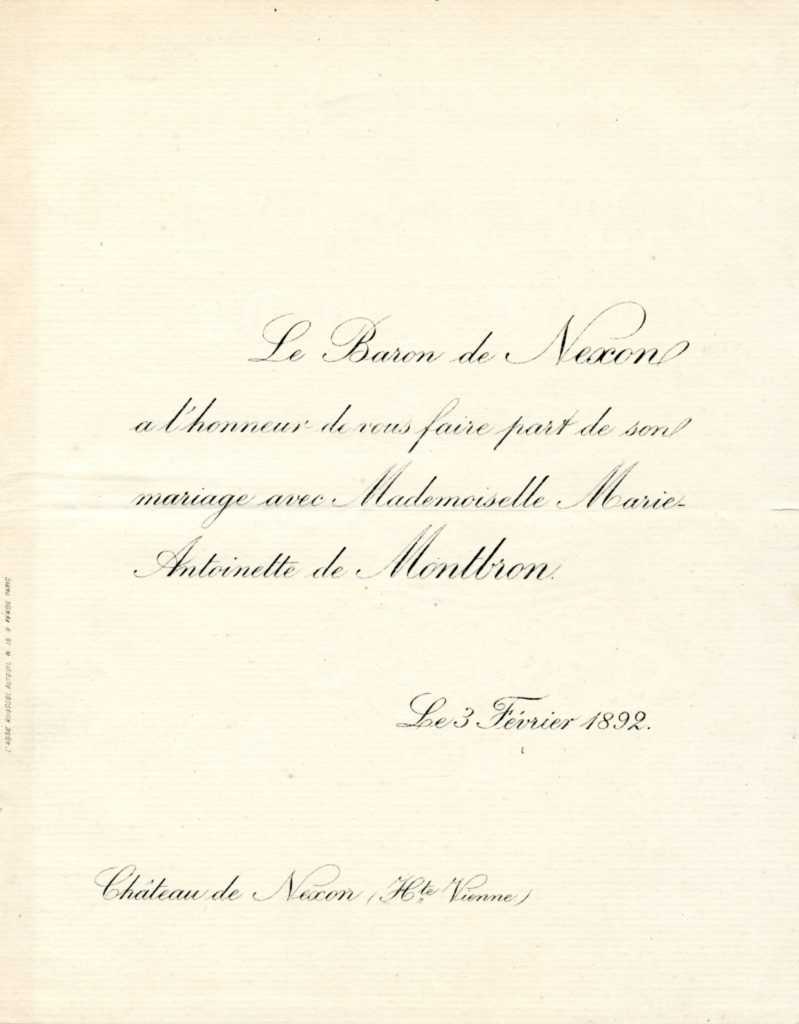 Le Baron de Nexon
a l'honneur de vous faire part de son
mariage avec Mademoiselle Marie-
Antoinette de Montbron.
Le 3 Février 1892.
Château de Nexon (Hte Vienne)
L'ABBÉ ROUSSEL AUTEUIL & 16 R FÉROU PARIS